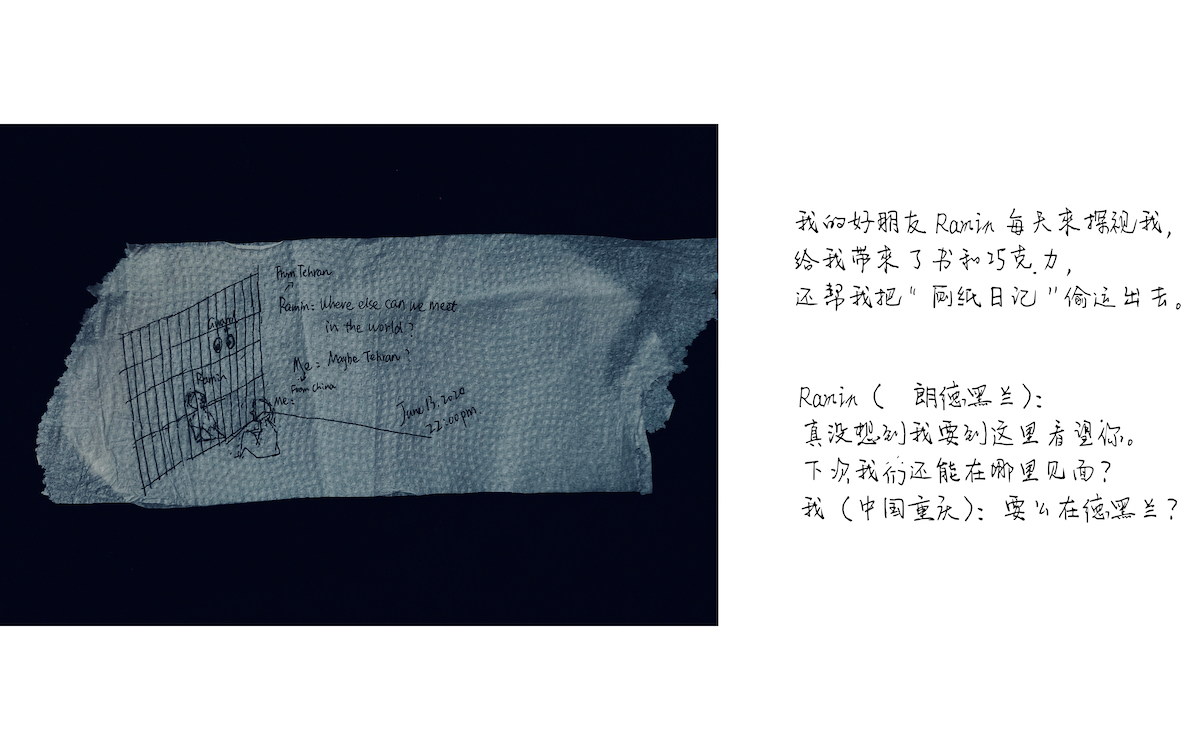 From Tehran
Ramin: Where else can we meet
in the world?
Guard
Me: Maybe Tehran?
Ramin
From China
Me:
June 13, 2020
22:00pm
我的好朋友Ramin每天来探视我,
给我带来了书和巧克力,
还帮我把“厕纸日记”偷运出去。
Ramin( 朗德黑兰):
真没想到我要到这里看望你。
下次我们还能在哪里见面?
我(中国重庆): 要么在德黑兰?